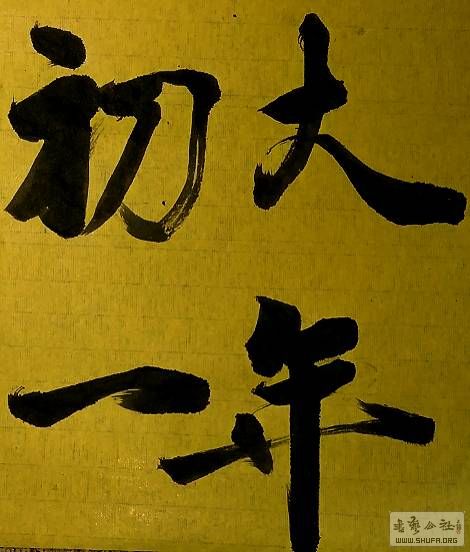 大年
初一
书艺公社
WWW.SHUFA.ORG